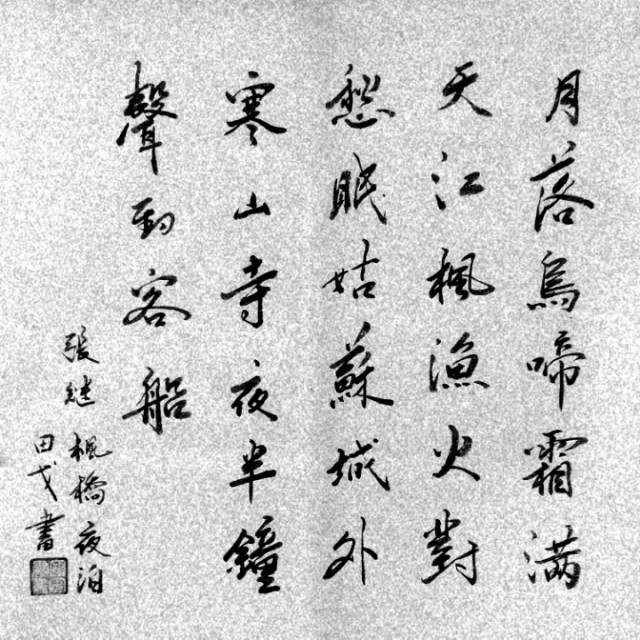 月落烏啼霜满
天江楓漁火對
愁眠姑蘇城外
寒山寺夜半鐘
聲到客船
張継楓橋夜泊
田戈書